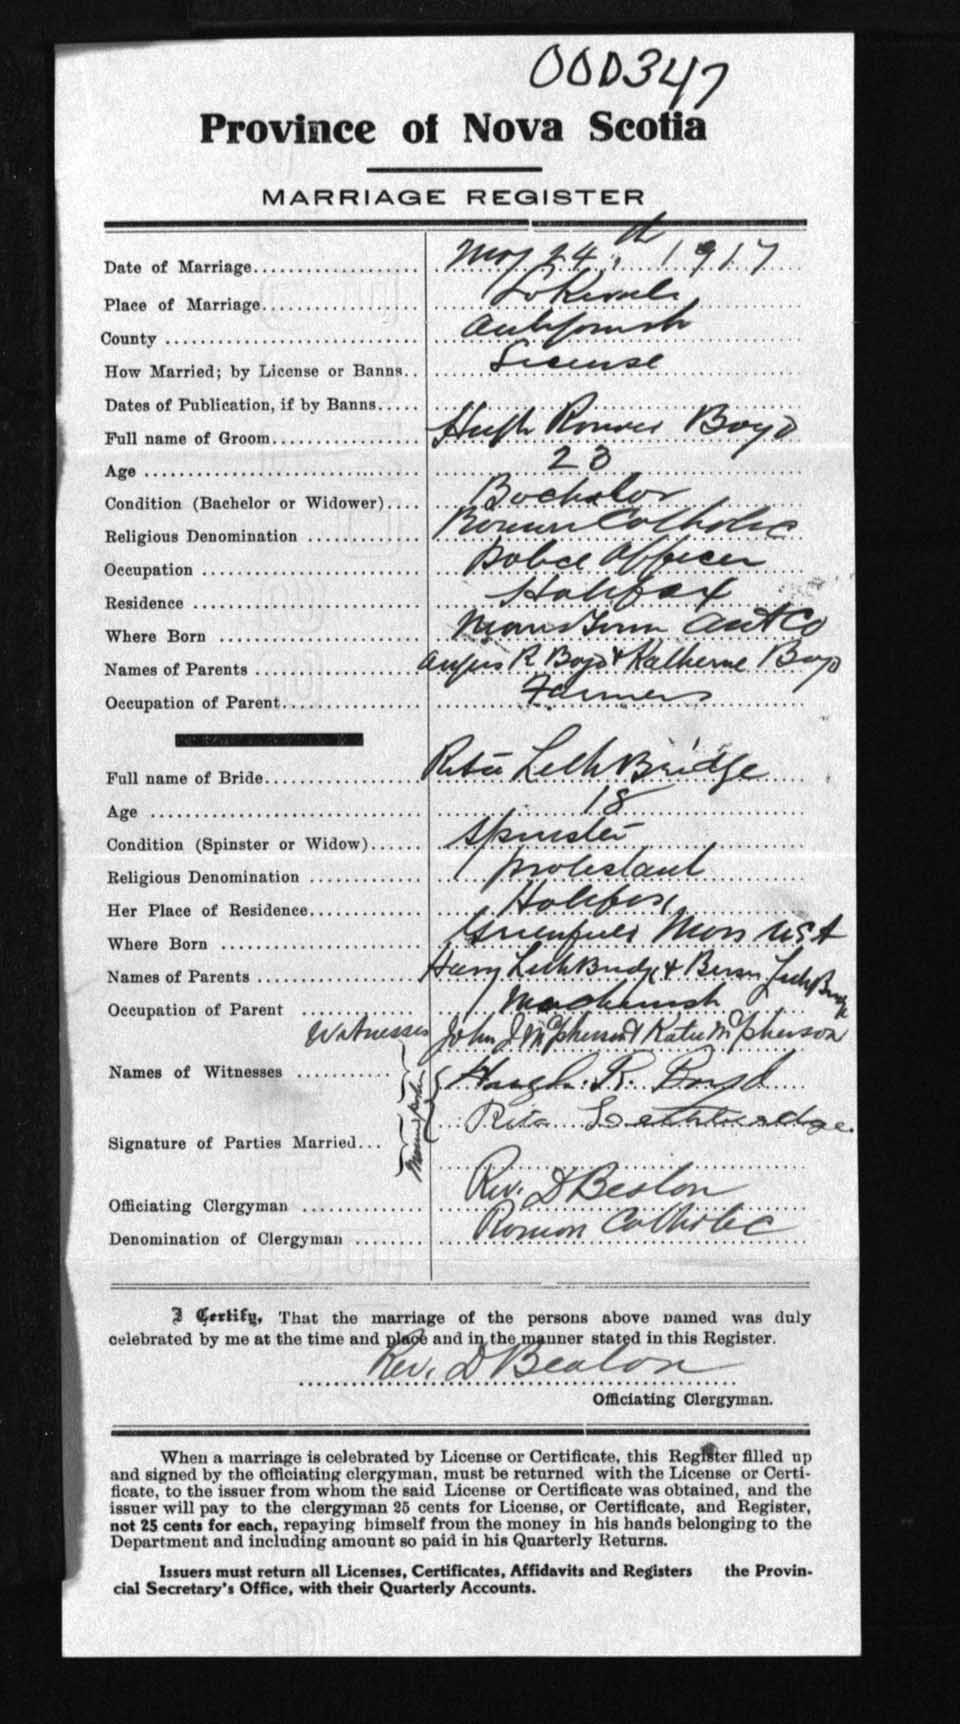 000347
Province of Nova Scotia
MARRIAGE REGISTER
Date of Marriage May 24th 1917
Place of Marriage
County Antigonish
How Married; by License or Banns License
Dates of Publication, if by Banns
Full name of Groom Hugh Boyd
Age 23
Condition (Bachelor or Widower) Bachelor
Religious Denomination Roman Catholic
Occupation Police Officer
Residence Halifax
Where Born Ant Co
Names of Parents Angus R Boyd & Katherine Boyd
Occupation of Parent Farmers
Full name of Bride Rita LethBridge
Age 18
Condition (Spinster or Widow) Spinster
Religious Denomination Protestant
Her Place of Residence Halifax
Where Born Mass USA
Names of Parents Harry LethBridge & LethBridge
Occupation of Parent Machinist
Witnesses John J McPherson & Katie McPherson
Names of Witnesses Hugh. R. Boyd
Rita Lethbridge.
Signature of Parties Married
Officiating Clergyman Rev. D Beaton
Denomination of Clergyman Roman Catholic
I Certify, That the marriage of the persons above named was duly
celebrated by me at the time and place and in the manner stated in this Register.
Rev. D Beaton
Officiating Clergyman.
When a marriage is celebrated by License or Certificate, this Register filled up
and signed by the officiating clergyman, must be returned with the License or Certi-
ficate, to the issuer from whom the said License or Certificate was obtained, and the
issuer will pay to the clergyman 25 cents for License, or Certificate, and Register,
not 25 cents for each, repaying himself from the money in his hands belonging to the
Department and including amount so paid in his Quarterly Returns.
Issuers must return all Licenses, Certificates, Affidavits and Registers the Provin-
cial Secretary's Office, with their Quarterly Accounts.